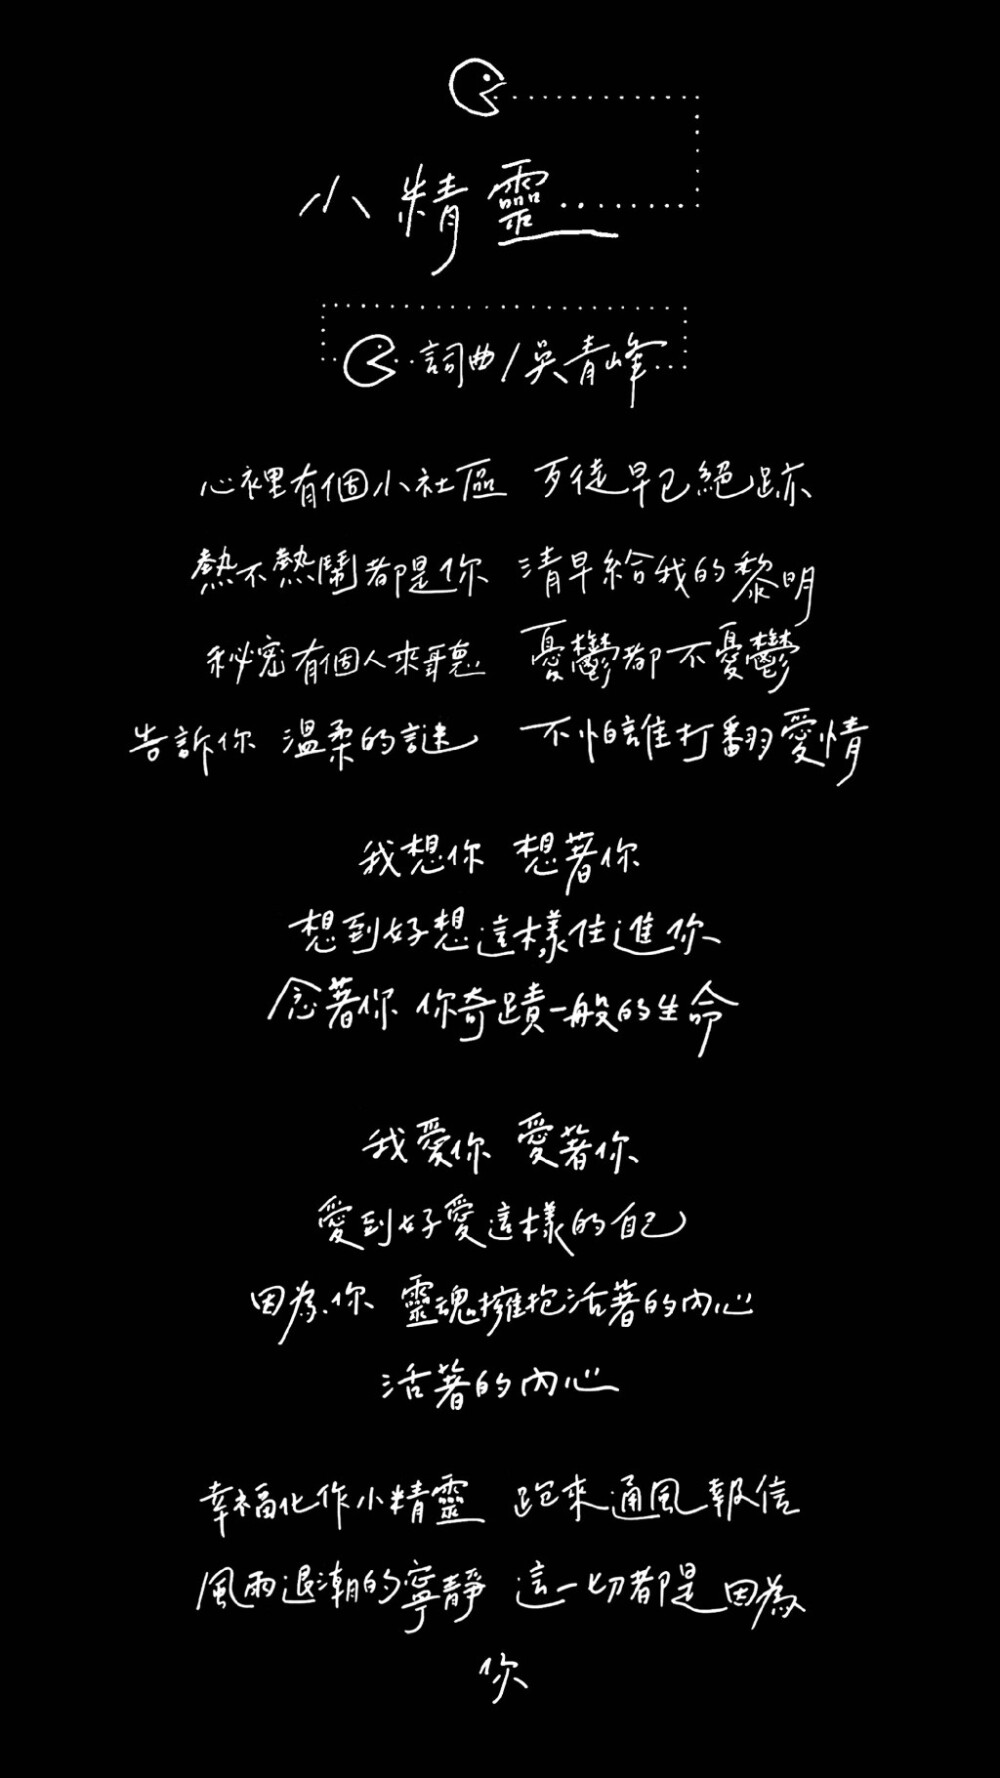 小精靈
詞曲/吳青峰
心裡有個小社區 歹徒早已絕跡
熱不熱鬧都是你 清早給我的黎明
秘密有個人來聽 憂鬱都不憂鬱
告訴你 溫柔的謎 不怕誰打翻愛情
我想你 想著你
想到好想這樣住進你
念著你 你奇蹟一般的生命
我愛你 愛著你
愛到好愛這樣的自己
因為你 靈魂擁抱活著的內心
活著的內心
幸福化作小精靈 跑來通風報信
風雨退潮的寧靜 這一切都是因為
你